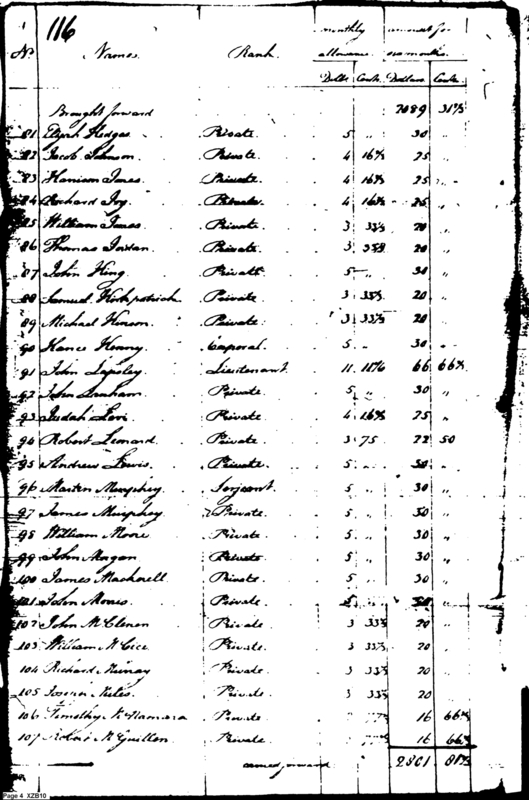 116
monthly amount for
No Names Rank allowance six months
Dolls Cents Dollars Cents
Brought forward 2089 31⅓
81 Elijah Hedges Private 5 " 30 "
82 Jacob Johnson Private 4 16⅔ 25 "
83 Harrison Jones Private 4 16⅔ 25 "
84 Richard Ivy Private 4 16⅔ 25 "
85 William Jones Private 3 33⅓ 20 "
86 Thomas Jordan Private 3 33⅓ 20 "
87 John King Private 5 " 30 "
88 Samuel Kirkpatrick Private 3 33⅓ 20 "
89 Michael Private 3 33⅓ 20 "
90 Corporal 5 " 30 "
91 John Lapsley Lieutenant 11 11⅙ 66 66⅔
92 John Private 5 " 30 "
93 Judah Levi Private 4 16⅔ 25 "
94 Robert Leonard Private 3 75 22 50
95 Andrew Lewis Private 5 " 30 "
96 Martin Murphey Serjeant 5 " 30 "
97 James Murphey Private 5 " 30 "
98 William Moore Private 5 " 30 "
99 John Morgan Private 5 " 30 "
100 James Private 5 " 30 "
101 John Private 5 " 30 "
102 John Private 3 33⅓ 20 "
103 William Private 3 33⅓ 20 "
104 Richard Private 3 33⅓ 20
105 Private 3 33⅓ 20
106 Timothy McNamara Private 16 66⅔
107 Robert McGuillen Private 16 66⅔
carried forward 2801 81⅓
Page 4 XZB10